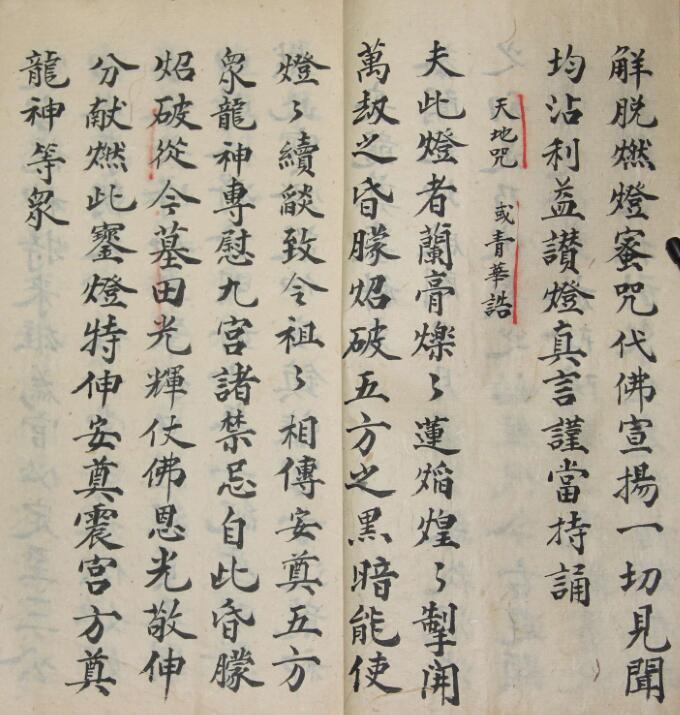 解脱燃燈蜜咒代佛宣揚一切見聞
均沾利益讃燈真言謹當持誦
天地咒 或青華誥
夫此燈者蘭膏爍〻蓮焰煌〻掣開
萬劫之昏朦炤破五方之黑暗能使
燈〻續燄致令祖〻相傳安奠五方
衆龍神專慰九宮諸禁忌自此昏朦
炤破從今墓田光輝仗佛恩光敬伸
分献燃此寳燈特伸安奠震宮方奠
龍神等衆